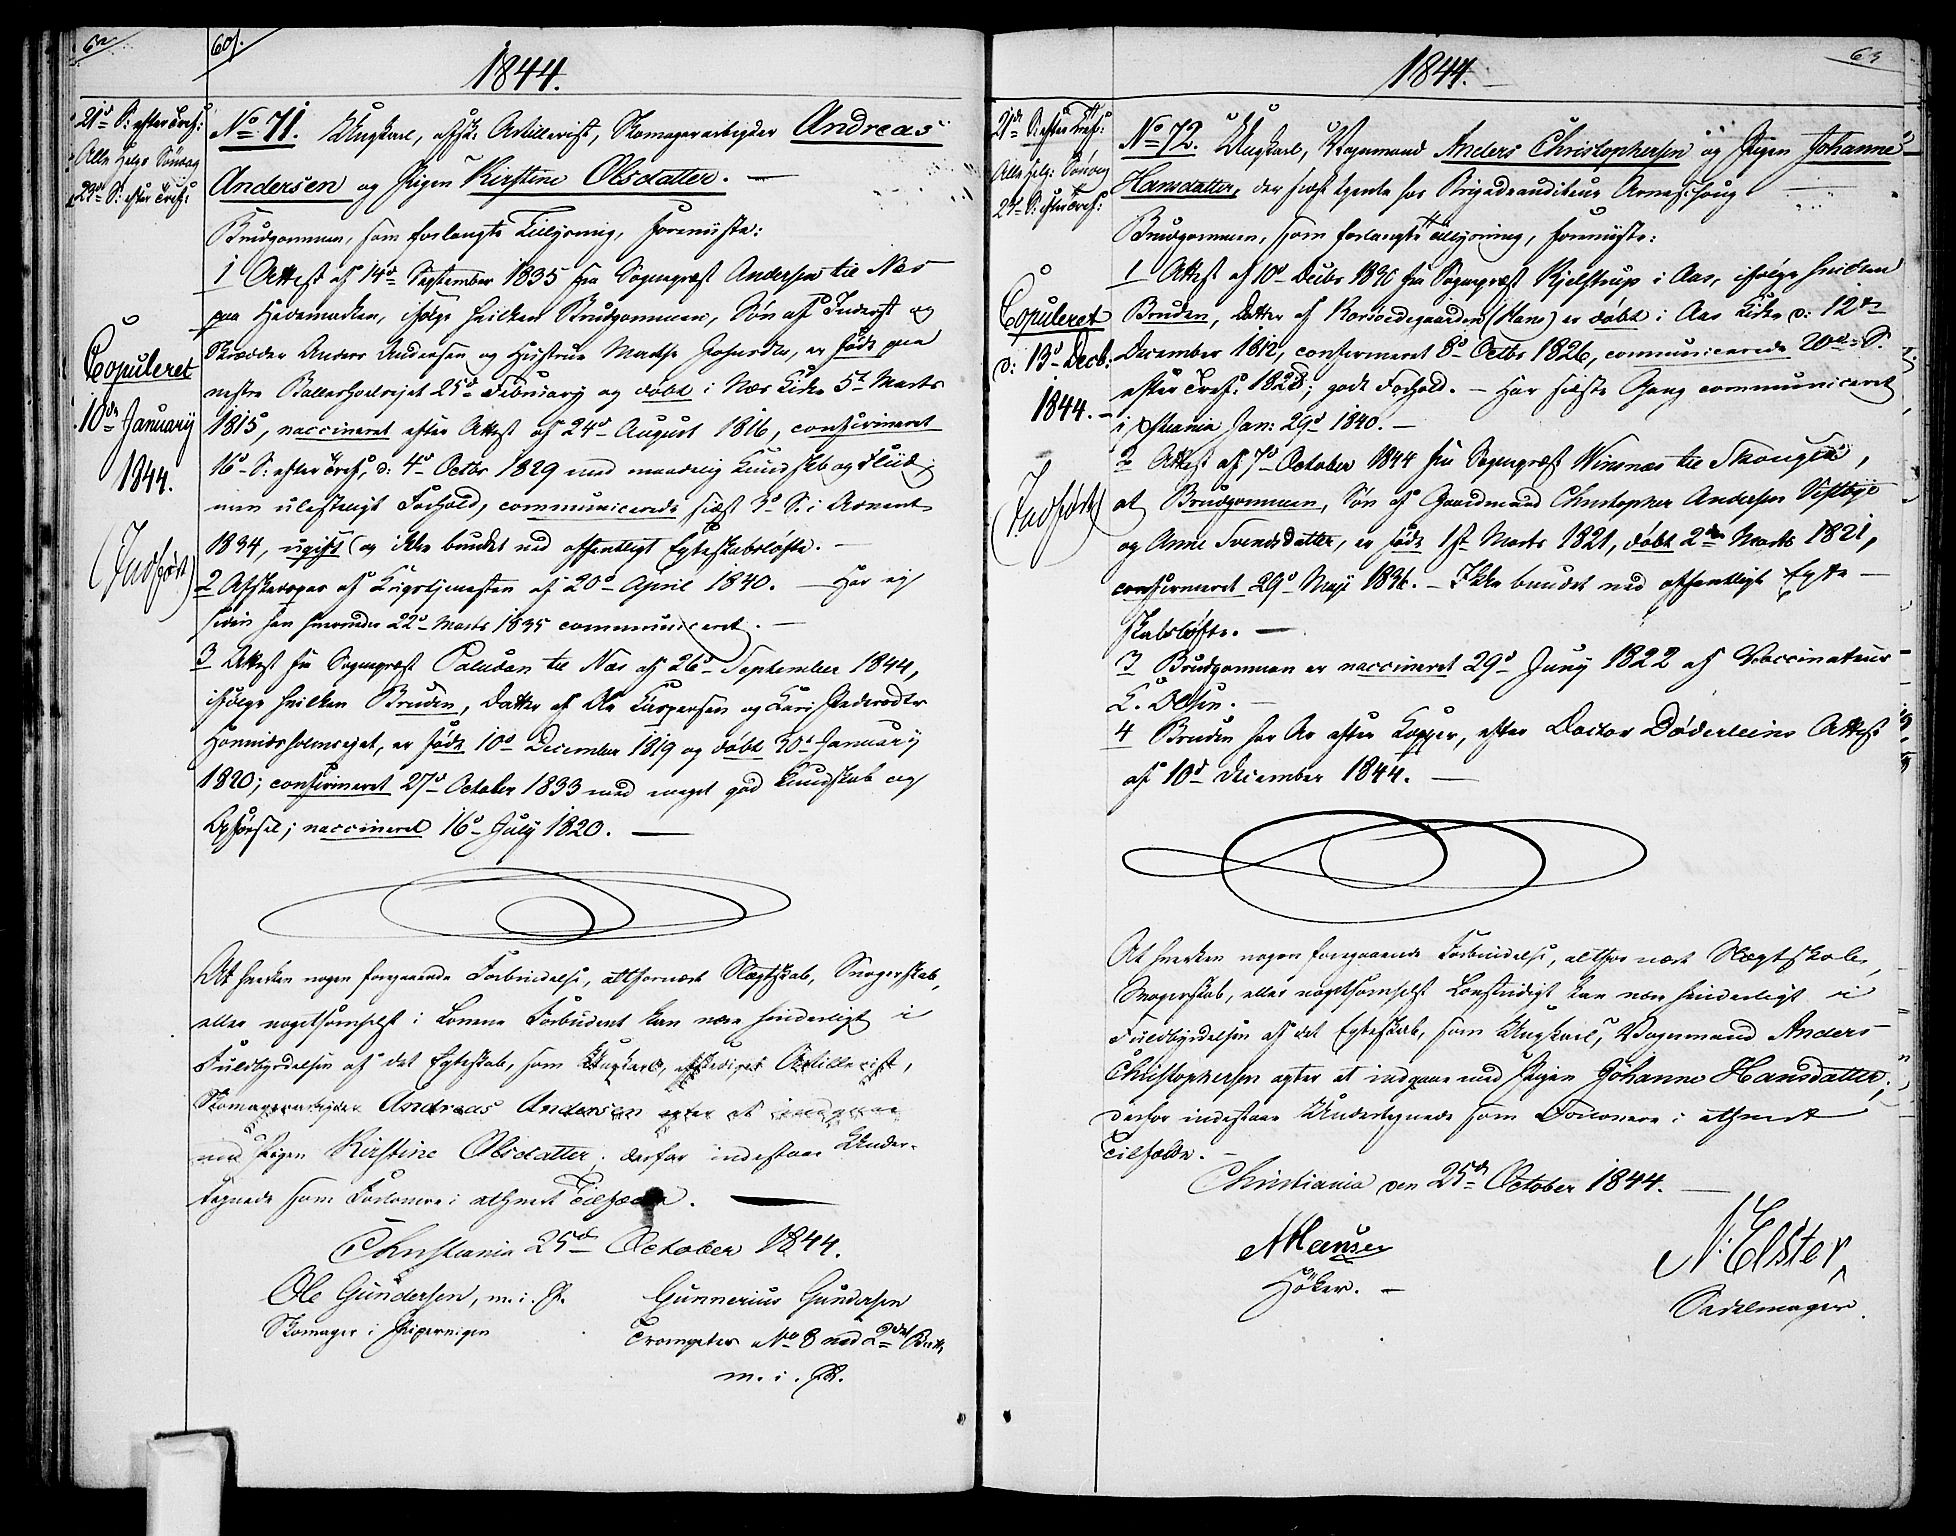 62
60/.
1844.
21d S: efter Tref:
Alle Helge Søndag
23d S: efter Tref:
Copuleret
10de January
1844.
(Indført)
No 71. Ungkarl, afsk: Artillerist, Skomagerarbeyder Andreas
Andersen og Pigen Kirstine Olsdatter. —
Brudgommen, som forlangte Tillysning, foreviiste:
1 Attest af 14d September 1835 fra Sognepræst Andersen til Næs
paa Hedemarken, ifølge hvilken Brudgommen, Søn af Inderst og
Skrædder Anders Andersen og Hustrue Marthe Johnsdtr, er født paa
nestre 25d February og døbt i Næs Kirke 5t Marts
1815, vaccineret efter Attest af 24d August 1816, confirmeret
16d S: efter Tref: d: 4d Octbr 1829 med maadelig Kundskb og Fliid;
men ulasteligt Forhold, communicerede sidst 3d S: i Advent
1834, ugift og ikke bundet ved offentligt Egteskabsløfte. —
2 Afskedspas af Krigstjenesten af 20d April 1840. — Har ej
siden han 22d Marts 1835 communiceret. —
3 Attest fra Sognepræst Paludan til Næs af 26d September 1844,
ifølge hvilken Bruden, Datter af Ole Caspersen og Kari Pedersdtr
er født 10d December 1819 og døbt 30d January
1820; confirmeret 27d October 1833 med meget god Kundskab og
Opførsel; vaccineret 16d July 1820. —
At hverken nogen foregaaende Forbindelse, altfornært Slægtskab, Svogerskab,
eller nogetsomhelst i Lovene Forbudent kan være hinderligt i
Fuldbyrdelsen af det Egteskab, som Ungkarl, afskediget Artillerist,
Skomagerarbeyder Andreas Andersen agter at indgaae
med Pigen Kirstine Olsdatter, derfor indestaae Under-
tegnede som Forlovere i ethvert Tilfælde. —
Christiania 25d October 1844.
Ole Gundersen, m. i. P.
Skomager i Pipervigen
Gunnerius Gundersen
Trompeter No 8 ved 2det Batt.
m. i. P.
63
1844. -
21d S: efter Tref:
Alle Helg: Søndag
23d S: efter Tref:
Copuleret
d: 13d Decb:
1844. -
(Indført)
No 72. Ungkarl, Vognmand Anders Christophersen og Pigen Johanne
Hansdatter, der sidst tjente hos Brigadeauditeur
Brudgommen, som forlangte Tillysning, foreviiste:
1 Attest af 10d Decbr fra Sognepræst Kjelstrup i Aas, ifølge hvilken
Bruden, Datter af (Hans) er døbt i Aas Kirke d: 12te
December 1812, confirmeret 8d Octbr 1826, communicerede 20de S.
efter Tref: 1828; godt Forhold. — Har sidste Gang communiceret
i Jan: 29d 1840. —
2 Attest af 7d October 1844 fra Sognepræst Winsnæs til Skouger,
at Brudgommen, Søn af Gaardmand Christopher Andersen
og Anne Svendsdatter, er født 1st Marts 1821, døbt 2den Marts 1821,
confirmeret 29d Maji 1836. - Ikke bundet ved offentligt Egte —
skabsløfte. —
3 Brudgommen er vaccineret 29d Juny 1822 af Vaccinateur
Olsen. —
4 Bruden har Ar efter Kopper, efter Doctor Døderleins Attest
af 10d December 1844. —
At hverken nogen foregaaende Forbindelse, altfor nært Slægtskab,
Svogerskab, eller nogetsomhelst Lovstridigt kan være hinderligt i
Fuldbyrdelsen af det Egteskab, som Ungkarl, Vognmand Anders
Christophersen agter at indgaae med Pigen Johanne Hansdatter,
derfor indestaae Undertegnede som Forlovere i ethvert
Tilfælde. —
Christiania den 25de October 1844. —
A Hansen
Høker. -
N: Elster
Sadelmager.